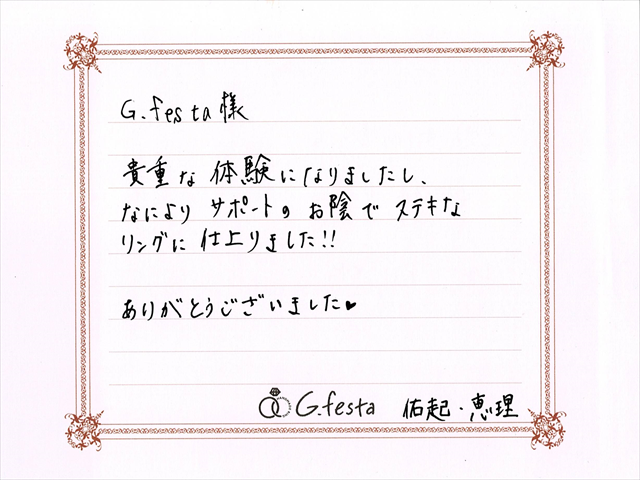 G.festa様
貴重な体験になりましたし、
なにより サポートの お陰で ステキな
リングに 仕上りました!!
ありがとうございました♥
G.festa 佑起・恵理